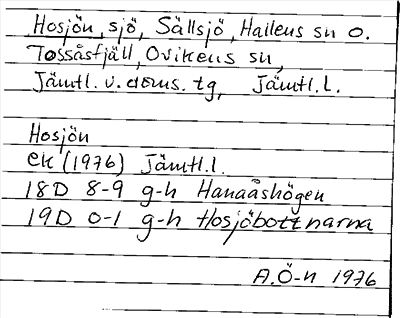 Hosjön, sjö, Sällsjö, Hallens sn o.
Tossåsfjäll, Ovikens sn,
Jämtl. v. doms. tg, Jämtl. L.
Hosjön
ek (1976) Jämtl. l.
18D 8-9 g-h Hanaåshögen
19D 0-1 g-h Hosjöbottnarna
A.Ö-n 1976